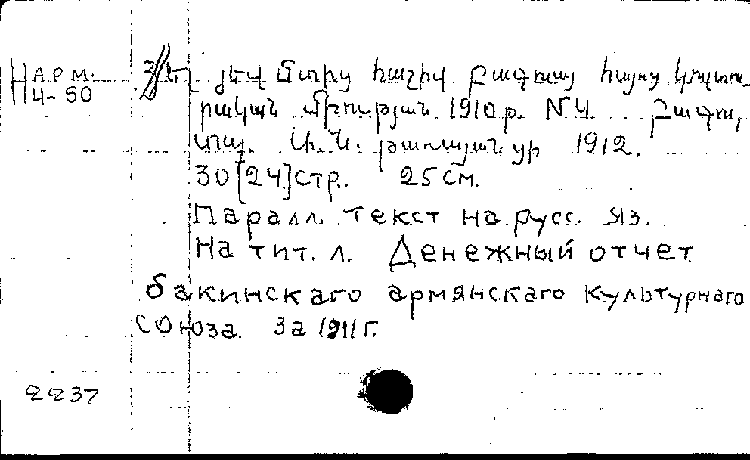 НАРМ.
4-50
Ելևմտից հաշիվ Բագուայ հայոց կուլտու-
րական միութեան 1910 р. N 4. Բագու,
տպ. Ն. թառայանցի 1912.
30 [24] стр. 25 см.
Паралл. текст на русс. яз.
На тит. л. Денежный отчет
бакинскаго армянскаго культурнаго
союза за 1911 г.
2237